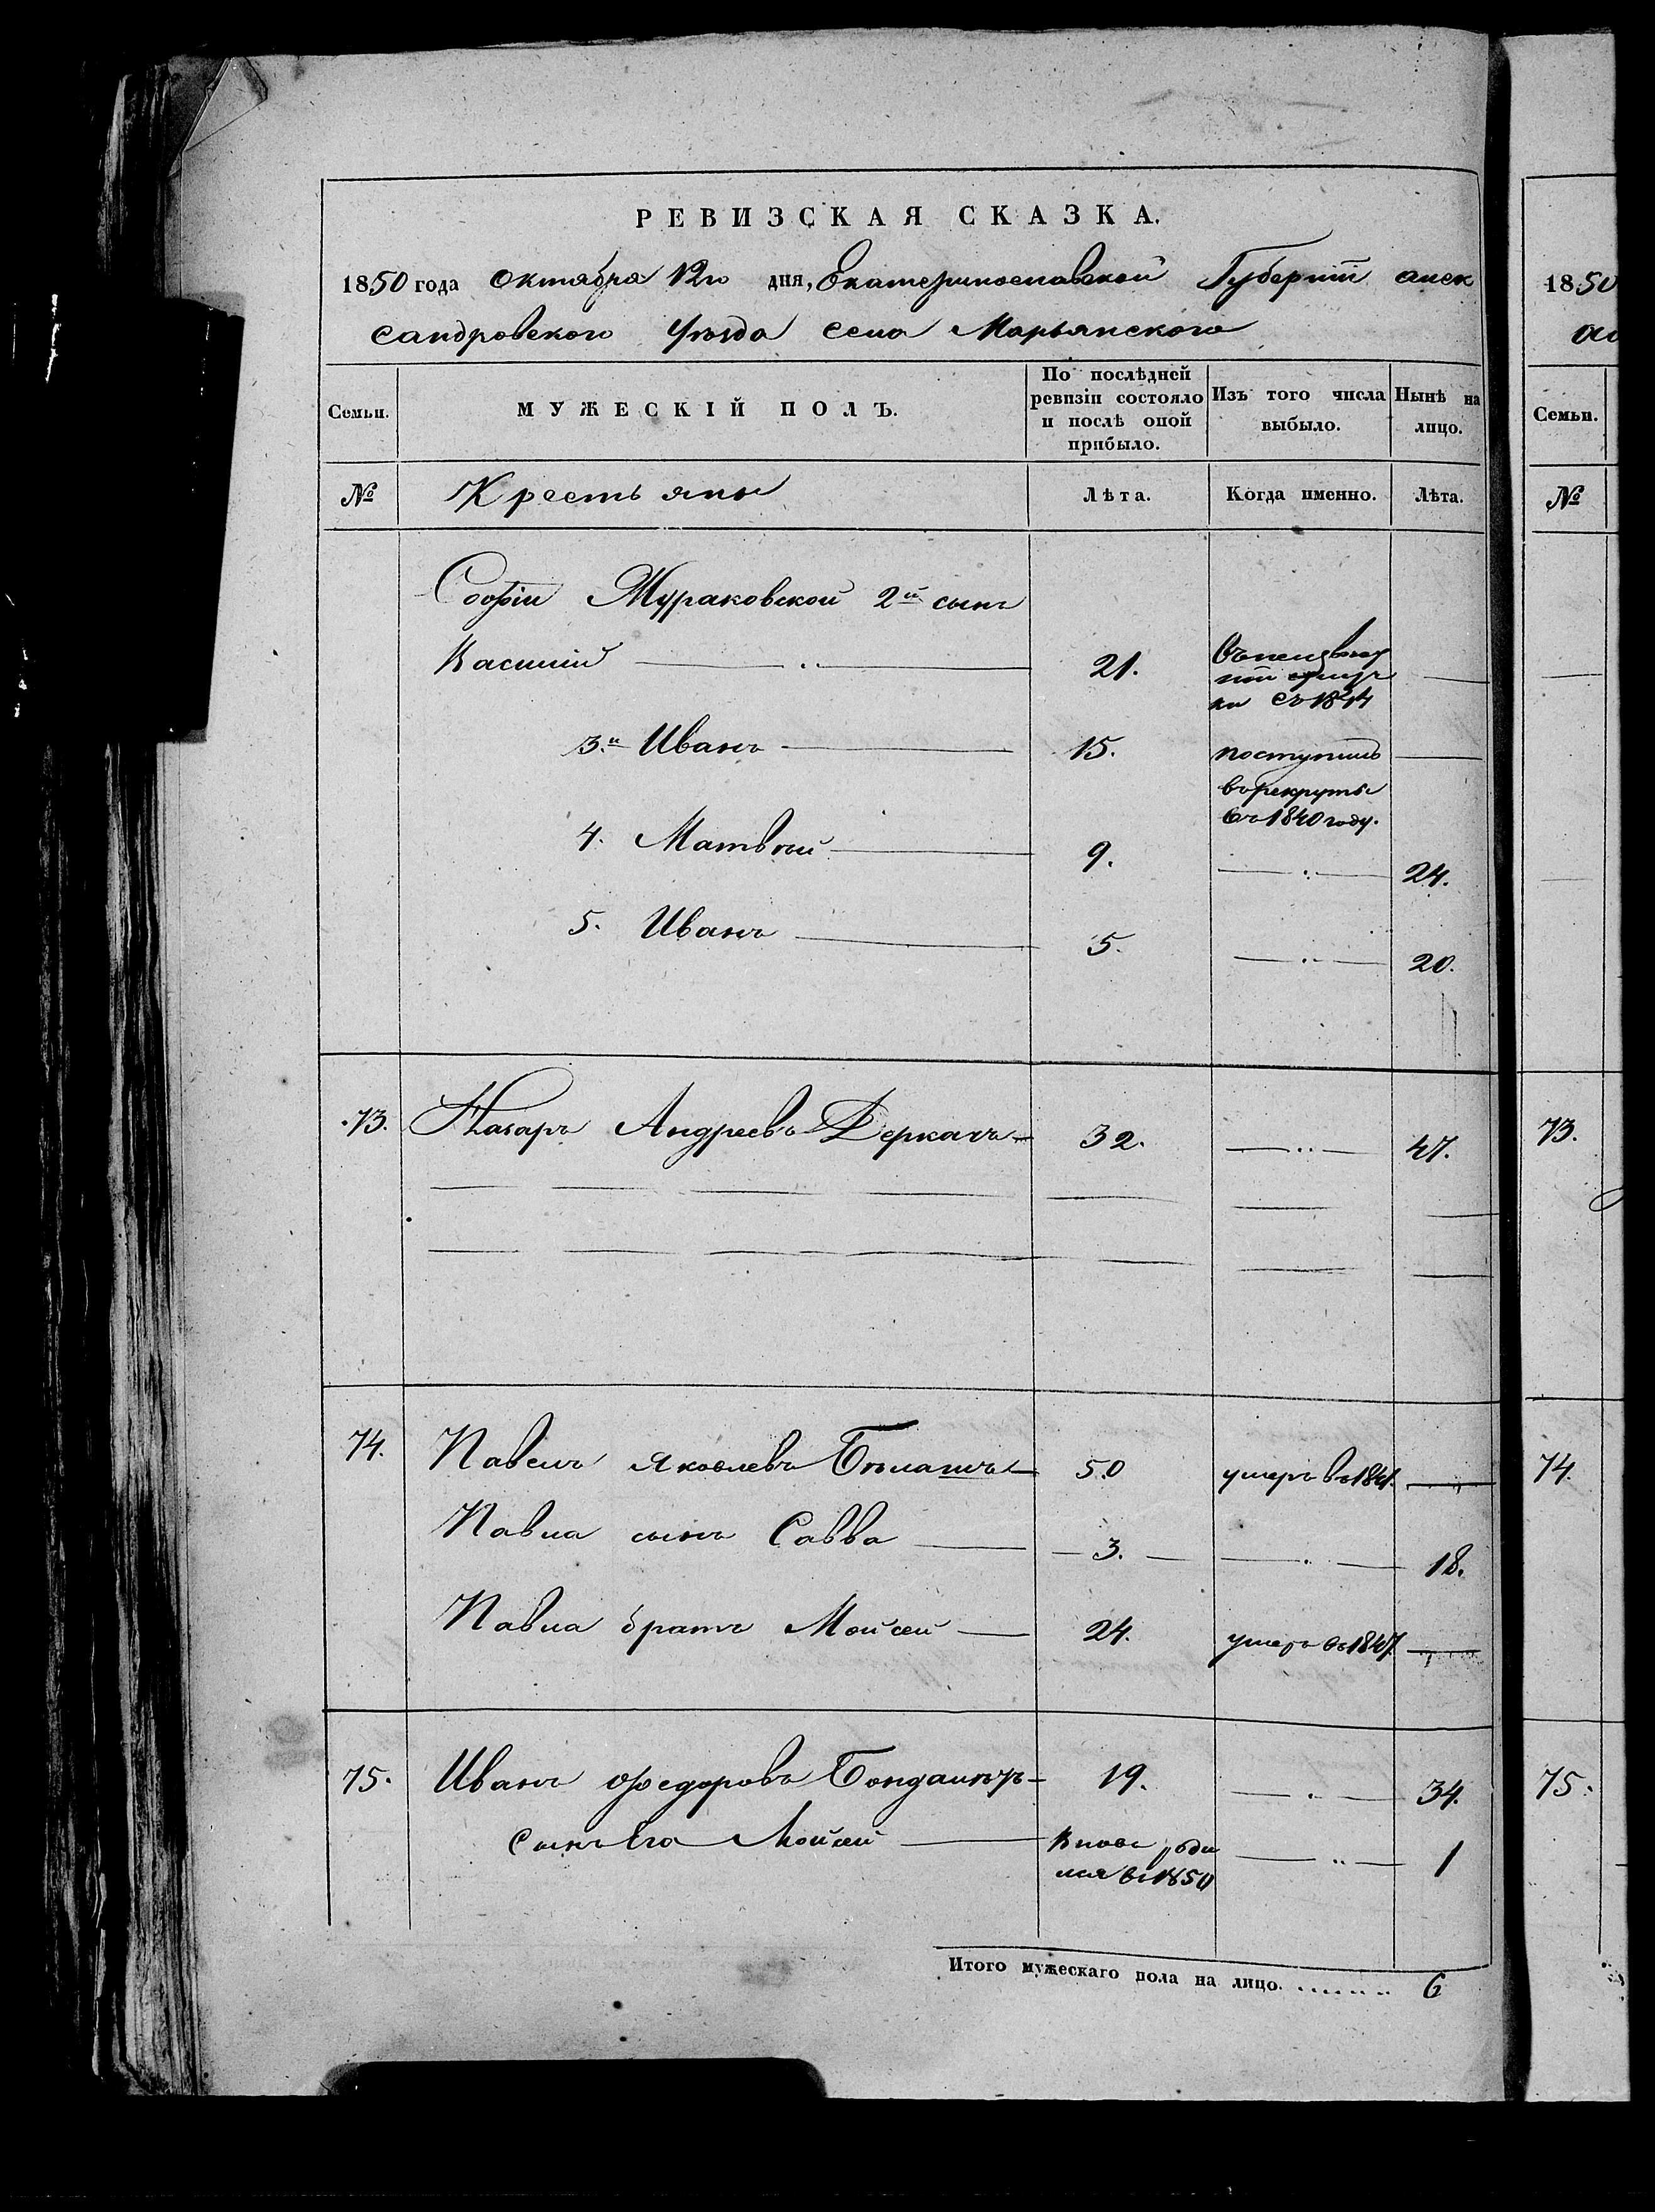 РЕВИЗСКАЯ СКАЗКА.
1850 года Октября 12го дня, Екатеринославской Губерніи алек
сандровского Уѣзда села Марьянского
Семьи.
МУЖЕСКІЙ ПОЛЪ.
По послѣдней ревизіи состояло и послѣ оной прибыло.
Изъ того числа выбыло.
Нынѣ на лицо.
№
Крестьяне
Лѣта.
Когда именно.
Лѣта.
Софіи Мураковской 2й сынъ
Василій 21.
съ 1844
3.й Иванъ 15. поступилъ
в рекруты
въ 1840 году.
4. Матвѣй 9. 24.
5. Иванъ 5. 20.
73. Назаръ Андреевъ Деркачъ 32. 47.
74. Павелъ Яковлевъ Бѣлашъ 50 умеръ въ 1841.
Павла сынъ Савва 3. 18.
Павла братъ Мойсей 24. умеръ въ 1847
75. Иванъ Федоровъ Бондаиръ 19. 34.
Сынъ Его Мойсей Вновь роди
лся въ 1850 1
Итого мужескаго пола на лицо. 6
1850
ал
Семьи.
№
73.
74.
75.